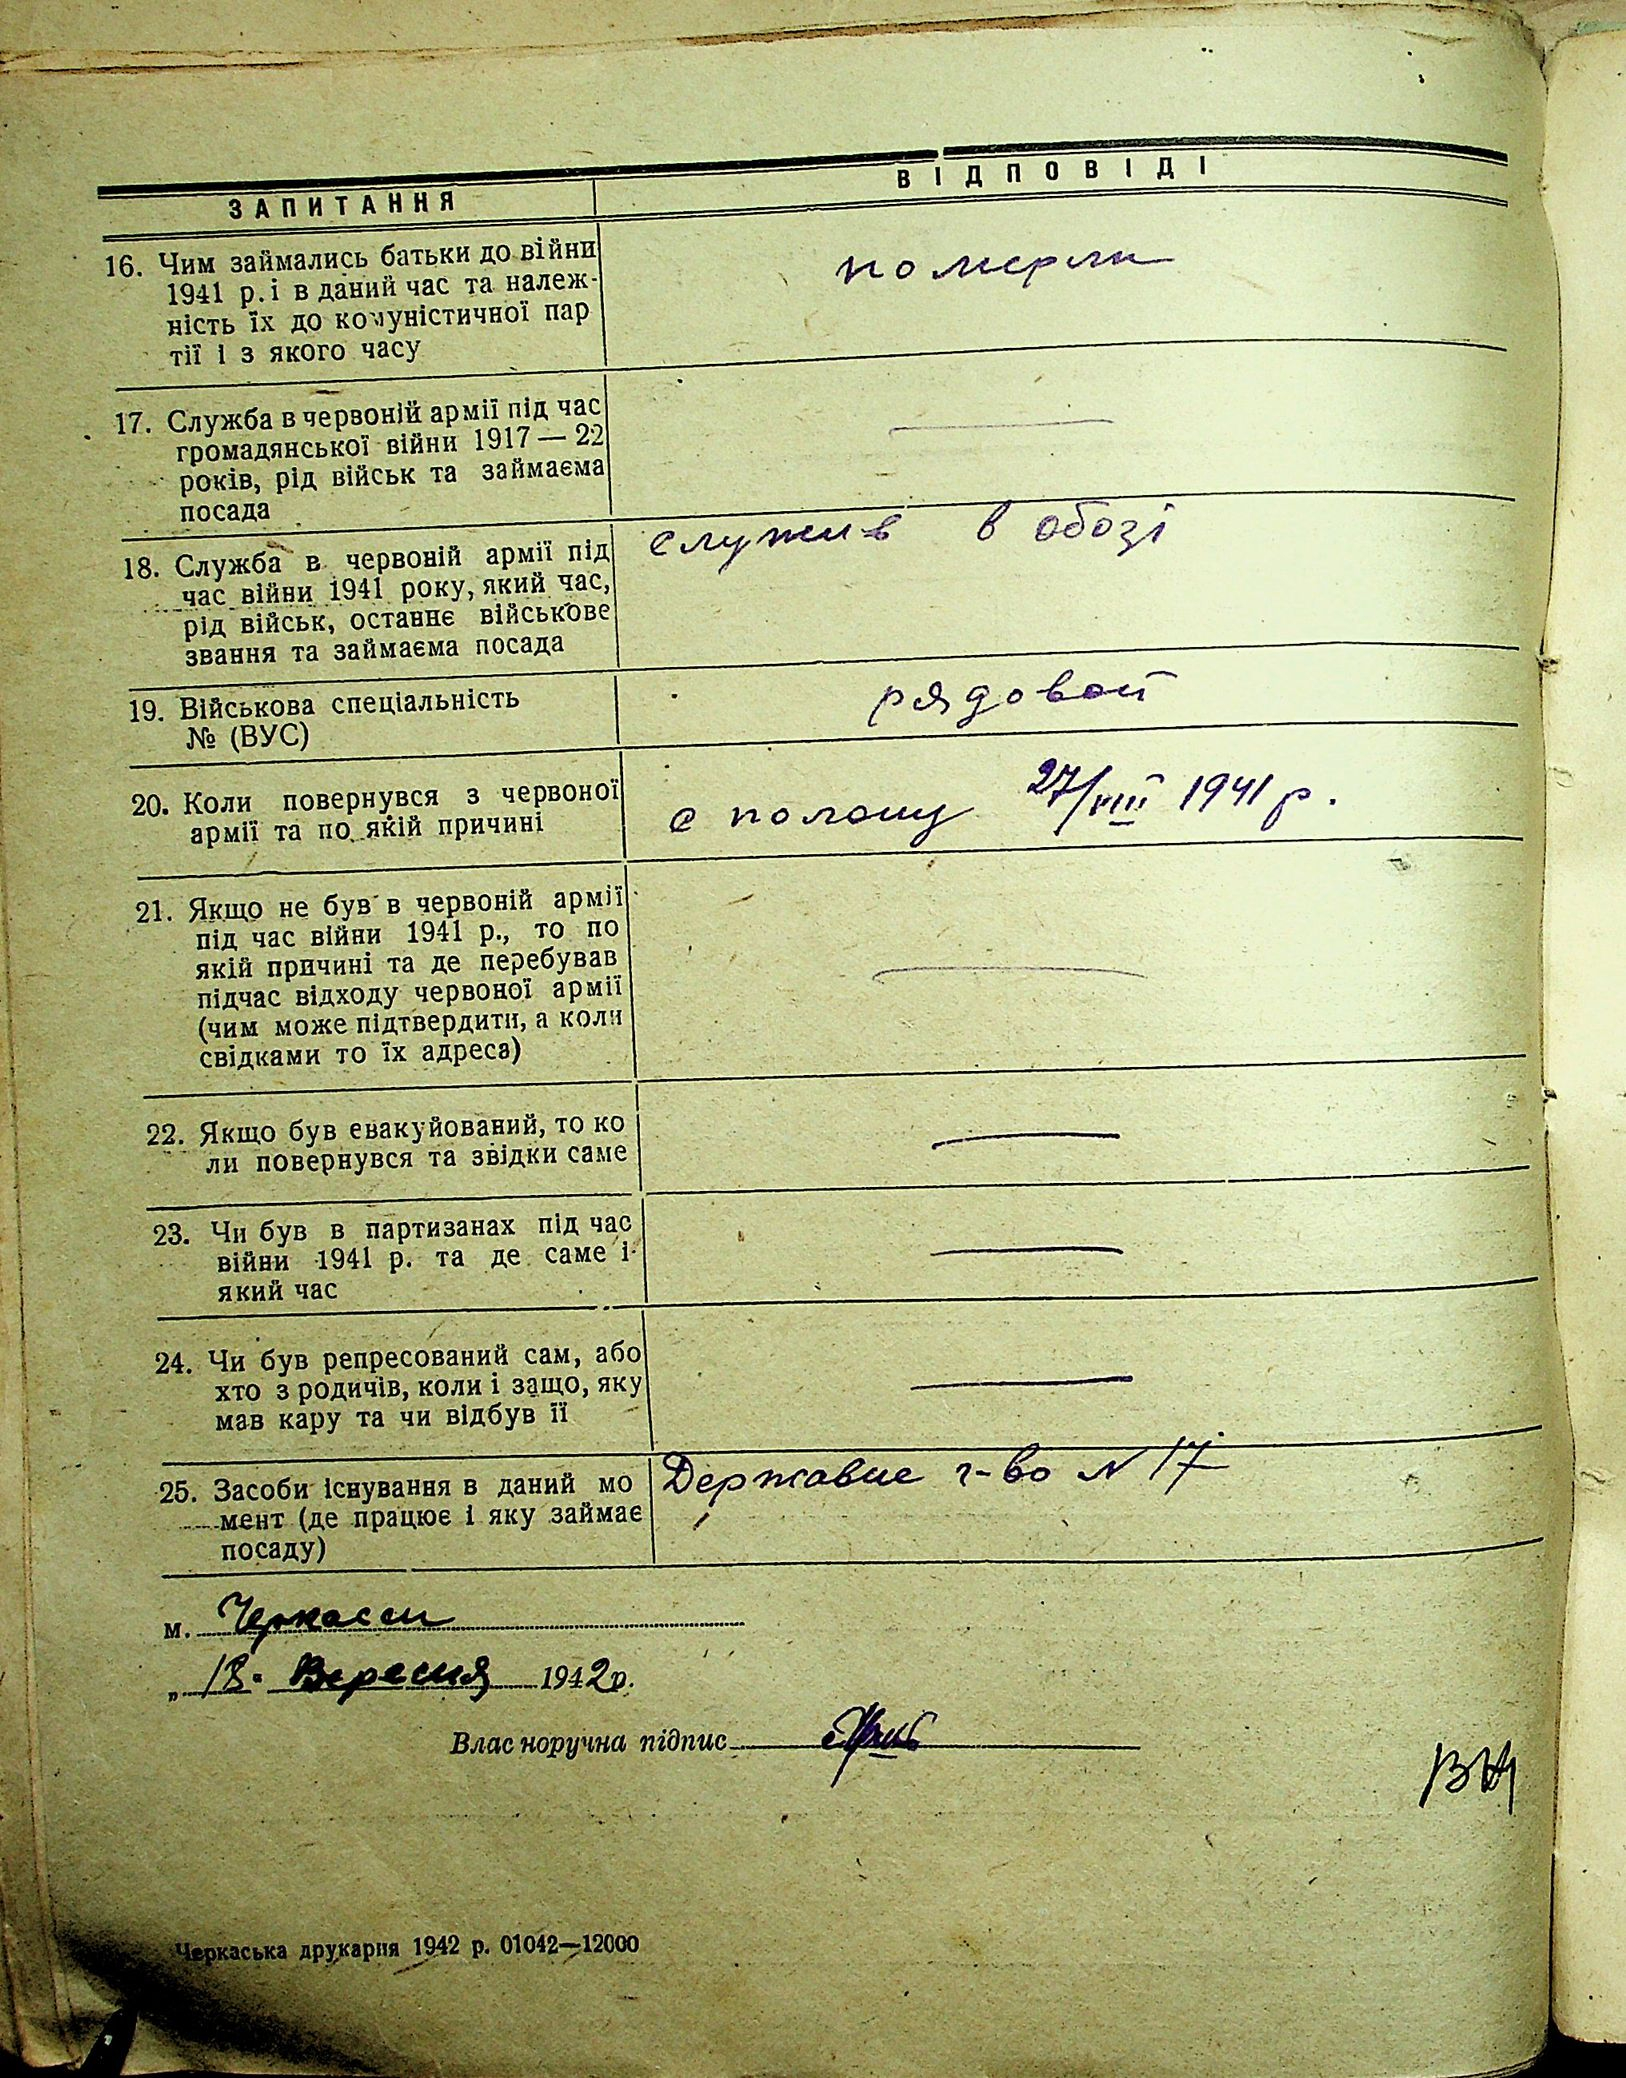 ЗАПИТАННЯ
ВІДПОВІДІ
16. Чим займались батьки до війни
1941 р. і в даний час та належ-
ність їх до комуністичної пар
тії і з якого часу
померли
17. Служба в червоній армії під час
громадянської війни 1917 — 22
років, рід військ та займаєма
посада
18. Служба в червоній армії під
час війни 1941 року, який час,
рід військ, останнє військове
звання та займаєма посада
служив в обозі
19. Військова спеціальність
№ (ВУС)
рядовой
20. Коли повернувся з червоної
армії та по якій причині
с полону 27/VIII 1941 р.
21. Якщо не був в червоній армії
під час війни 1941 р., то по
якій причині та де перебував
підчас відходу червоної армії
(чим може підтвердити, а коли
свідками то їх адреса)
22. Якщо був евакуйований, то ко
ли повернувся та звідки саме
23. Чи був в партизанах під час
війни 1941 р. та де саме і
який час
24. Чи був репресований сам, або
хто з родичів, коли і защо, яку
мав кару та чи відбув її
25. Засоби існування в даний мо
мент (де працює і яку займає
посаду)
Державне г-во N 17
м. Черкасси
„ 18. Вересня 1942 р.
Влас норучна підпис
Черкаська друкарня 1942 р. 01042—12000